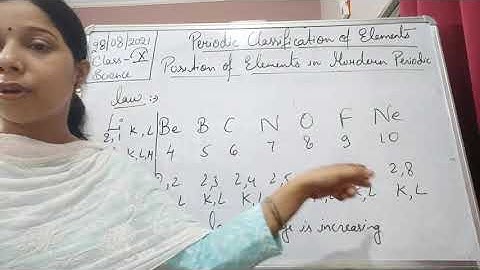 28/08/2021 Periodic Classification of Elements
Class-X
Science
Position of Elements in Mordern Periodic
law :→
Li K, L Be B C N O F Ne
2,1
K,L,M 4 5 6 7 8 9 10
2,2 2,3 2,4 2,5 2,8
L K, L K, L K, L K, L
is increasing